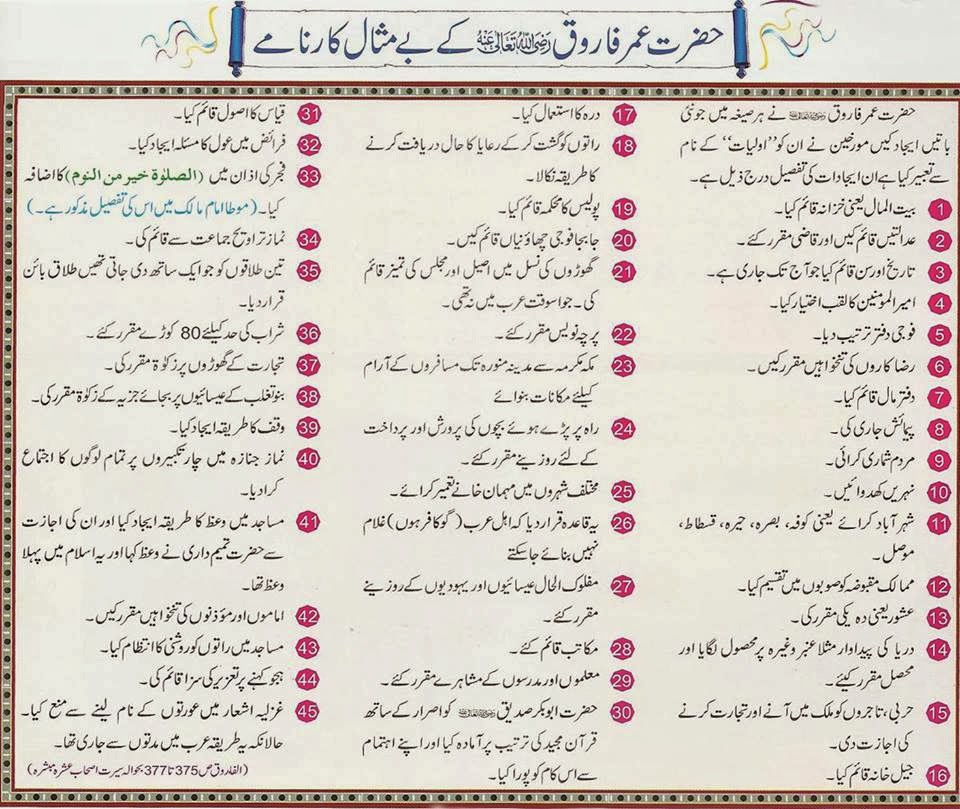 حضرت عمر فاروق رضی اللہ تعالیٰ عنہ کے بے مثال کارنامے
حضرت عمر فاروق رضی اللہ تعالیٰ عنہ نے ہر صیغہ میں جو نئی
باتیں ایجاد کیں مورخین نے ان کو ”اولیات“ کے نام
سے تعبیر کیا ہے ان ایجادات کی تفصیل درج ذیل ہے۔
1 بیت المال یعنی خزانہ قائم کیا۔
2 عدالتیں قائم کیں اور قاضی مقرر کئے۔
3 تاریخ اور سن قائم کیا جو آج تک جاری ہے۔
4 امیر المومنین کا لقب اختیار کیا۔
5 فوجی دفتر ترتیب دیا۔
6 رضا کاروں کی تنخواہیں مقرر کیں۔
7 دفتر مال قائم کیا۔
8 پیمائش جاری کی۔
9 مردم شماری کرائی۔
10 نہریں کھدوائیں۔
11 شہر آباد کرائے یعنی کوفہ، بصرہ، حیرہ، فسطاط،
موصل۔
12 ممالک مقبوضہ کو صوبوں میں تقسیم کیا۔
13 عشور یعنی دہ یکی مقرر کی۔
14 دریا کی پیداوار مثلا عنبر وغیرہ پر محصول لگایا اور
محصل مقرر کیئے۔
15 حربی، تاجروں کو ملک میں آنے اور تجارت کرنے
کی اجازت دی۔
16 جیل خانہ قائم کیا۔
17 درہ کا استعمال کیا۔
18 راتوں کو گشت کر کے رعایا کا حال دریافت کرنے
کا طریقہ نکالا۔
19 پولیس کا محکمہ قائم کیا۔
20 جا بجا فوجی چھاؤنیاں قائم کیں۔
21 گھوڑوں کی نسل میں اصیل اور مجلس کی تمیز قائم
کی۔ جو اسوقت عرب میں نہ تھی۔
22 پرچہ نویس مقرر کئے۔
23 مکہ مکرمہ سے مدینہ منورہ تک مسافروں کے آرام
کیلئے مکانات بنوائے
24 راہ پر پڑے ہوئے بچوں کی پرورش اور پرداخت
کے لئے روزینے مقرر کئے۔
25 مختلف شہروں میں مہمان خانے تعمیر کرائے۔
26 یہ قاعدہ قرار دیا کہ اہل عرب (گو کافر ہوں) غلام
نہیں بنائے جا سکتے
27 مفلوک الحال عیسائیوں اور یہودیوں کے روزینے
مقرر کئے۔
28 مکاتب قائم کئے۔
29 معلموں اور مدرسوں کے مشاہرے مقرر کئے۔
30 حضرت ابوبکر صدیق رضی اللہ تعالیٰ عنہ کو اصرار کے ساتھ
قرآن مجید کی ترتیب پر آمادہ کیا اور اپنے اہتمام
سے اس کام کو پورا کیا۔
31 قیاس کا اصول قائم کیا۔
32 فرائض میں عول کا مسئلہ ایجاد کیا۔
33 فجر کی اذان میں (الصلوٰۃ خیر من النوم) کا اضافہ
کیا۔ (موطا امام مالک میں اس کی تفصیل مذکور ہے۔)
34 نماز تراویح جماعت سے قائم کی۔
35 تین طلاقوں کو جو ایک ساتھ دی جاتی تھیں طلاق بائن
قرار دیا۔
36 شراب کی حد کیلئے 80 کوڑے مقرر کئے۔
37 تجارت کے گھوڑوں پر زکوٰۃ مقرر کی۔
38 بنو تغلب کے عیسائیوں پر بجائے جزیہ کے زکوٰۃ مقرر کی۔
39 وقف کا طریقہ ایجاد کیا۔
40 نماز جنازہ میں چار تکبیروں پر تمام لوگوں کا اجتماع
کرا دیا۔
41 مساجد میں وعظ کا طریقہ ایجاد کیا اور ان کی اجازت
سے حضرت تمیم داری نے وعظ کہا اور یہ اسلام میں پہلا
وعظ تھا۔
42 اماموں اور مؤذنوں کی تنخواہیں مقرر کیں۔
43 مساجد میں راتوں کو روشنی کا انتظام کیا۔
44 ہجو کہنے پر تعزیر کی سزا قائم کی۔
45 غزلیہ اشعار میں عورتوں کے نام لینے سے منع کیا۔
حالانکہ یہ طریقہ عرب میں مدتوں سے جاری تھا۔
(الفاروق ص 375 تا 377 بحوالہ سیرت اصحاب عشرہ مبشرہ)